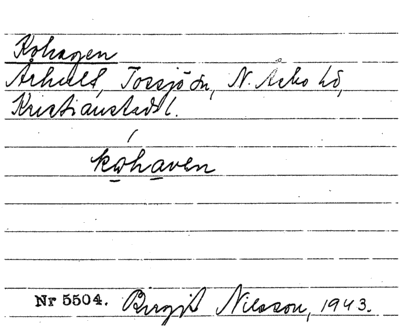 Kohagen
Århult, Torsjö sn, N. Åsbo hd,
Kristianstads l.
kohaven
Nr 5504. Birgit Nilsson, 1943.